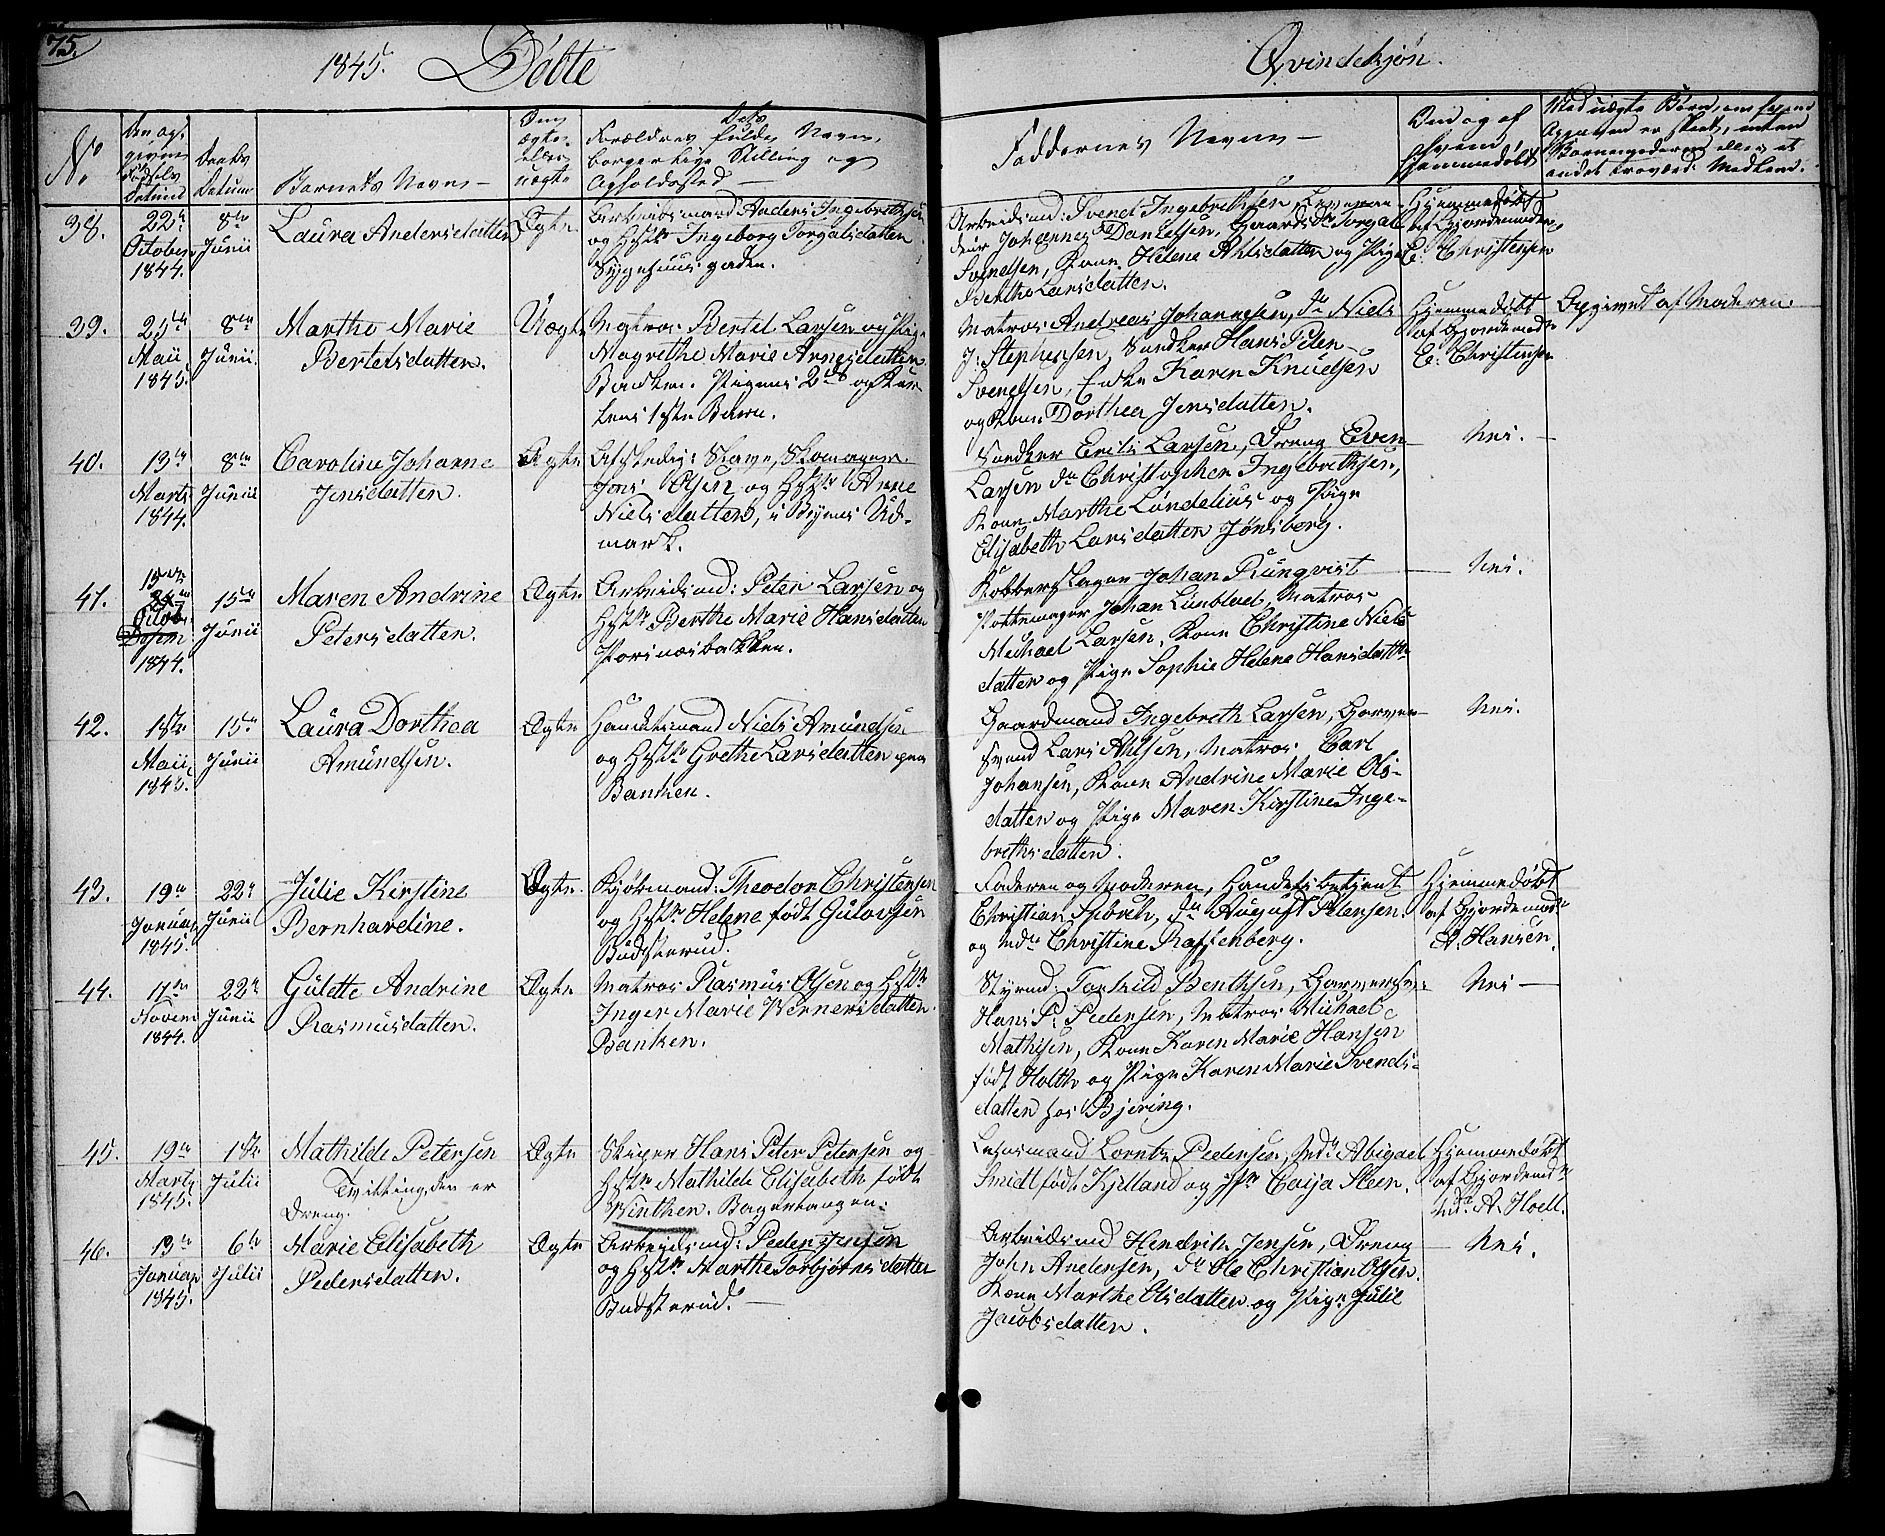 75.
1845. Döbte
Qvindekjøn.
No.
Daabs Datum
Barnets Navn
Forældres fulde Navn, borgerlige Stilling og Opholdssted
Faddernes Navne
38.
22de October 1844.
8de Junii
Laura Andersdatter
Ægte
Arbeidsmand Anders Ingebrethsen
og Hstr Ingeborg Torgalsdatter
Sygehuusgaden.
Arbeidsmd: Svend Ingebrethsen,
Johannes Danielsen, Gaards
Svendsen, Kone Helene Ahlsdatter og Pige
Berthe Larsdatter.
Hjemmedøbt
af Gjordemoder
C. Christensen
39.
25de Maii 1845.
8de Junii.
Marthe Marie
Bertelsdatter.
Uægte
Matros Bertel Larsen og Pige
Magrethe Marie Arnesdatter
Bakken. Pigens 2det og Kar-
lens 1ste Barn.
Matros Andreas Johannesen, do Niels
J. Stephensen, Snedker Hans Peter
Svendsen, Enke Karen Knudsen
og Kone Dorthea Jensdatter.
Hjemmedøbt
af Gjordemoder
C. Christensen
Opgivet af Moderen.
40.
13de Marts 1844.
8de Junii
Caroline Johanne
Jensdatter.
Ægte
Afskedig: Slave, Skomager
Jens Olsen og Hstr Anne
Nielsdatter, i Byens Ud-
mark.
Snedker Emil Larsen, Dreng Even
Larsen do Christopher Ingebrethsen,
Kone Marthe Lundelius og Pige
Elisabeth Larsdatter Jønsberg.
Nei.
41.
1844.
15de Junii
Maren Andrine
Petersdatter.
Ægte
Arbeidsmd: Peter Larsen og
Hstr Berthe Marie Hansdatter
Porsnæsbakken.
Kobberslager Johan Runqvist
Pottemager Johan Lunblad, Matros
Michael Larsen, Kone Christine Niels-
datter og Pige Sophie Helene Hansdatter
Nei.
42.
18de Maii 1845.
15de Junii
Laura Dorthea
Amundsen.
Ægte
Handelsmand Niels Amundsen
og Hstr Grethe Larsdatter paa
Banken.
Gaardmand Ingebreth Larsen, Garver-
svend Lars Ahlsen, Matros Carl
Johansen, Kone Andrine Marie Ols-
datter og Pige Maren Kirstine Inge-
brethsdatter.
Nei.
43.
19de Januar 1845.
22de Junii
Julie Kirstine
Bernhardine.
Ægte.
Kjøbmand: Theodor Christensen
og Hstr Helene født Gulovsen
Budsterud.
Faderen og Moderen, Handelsbetjent
Christian Sibbern, do August Petersen
og Md. Christine Raffenberg.
Hjemmedøbt
af Gjordemoder
A. Hansen.
44.
11te Novem 1844.
22de Junii
Gulette Andrine
Rasmusdatter.
Ægte
Matros Rasmus Olsen og Hstr
Inger Marie Wernersdatter
Banken.
Styrmd: Torkild Benthsen,
Hans P. Pedersen, Matros Michael
Mathisen, Kone Karen Marie Hansen
født Holth og Pige Karen Marie Svends-
datter hos Bjering.
Nei
45.
19de Marts 1845.
1ste Julii
Mathilde Petersen
Tvilling, den er
Dreng.
Ægte
Skipper Hans Peter Petersen og
Hstr Mathilde Elisabeth født
Winther. Bagertangen.
Lorentz Pedersen, Md. Abigael
Smidt født Kjelland og Jfr Caija Steen.
Hjemmedøbt
af Gjordemoder
A. Hoell.
46.
13de Januar 1845.
6te Julii
Marie Elisabeth
Pedersdatter.
Ægte
Arbeidsmd: Peder Jensen
og Hstr Marthe Torbjørnsdatter
Budsterud.
Arbeidsmd Hendrik Jensen, Dreng
John Andersen, do Ole Christian Olsen.
Kone Marthe Olsdatter og Pige Julie
Jacobsdatter.
Nei.